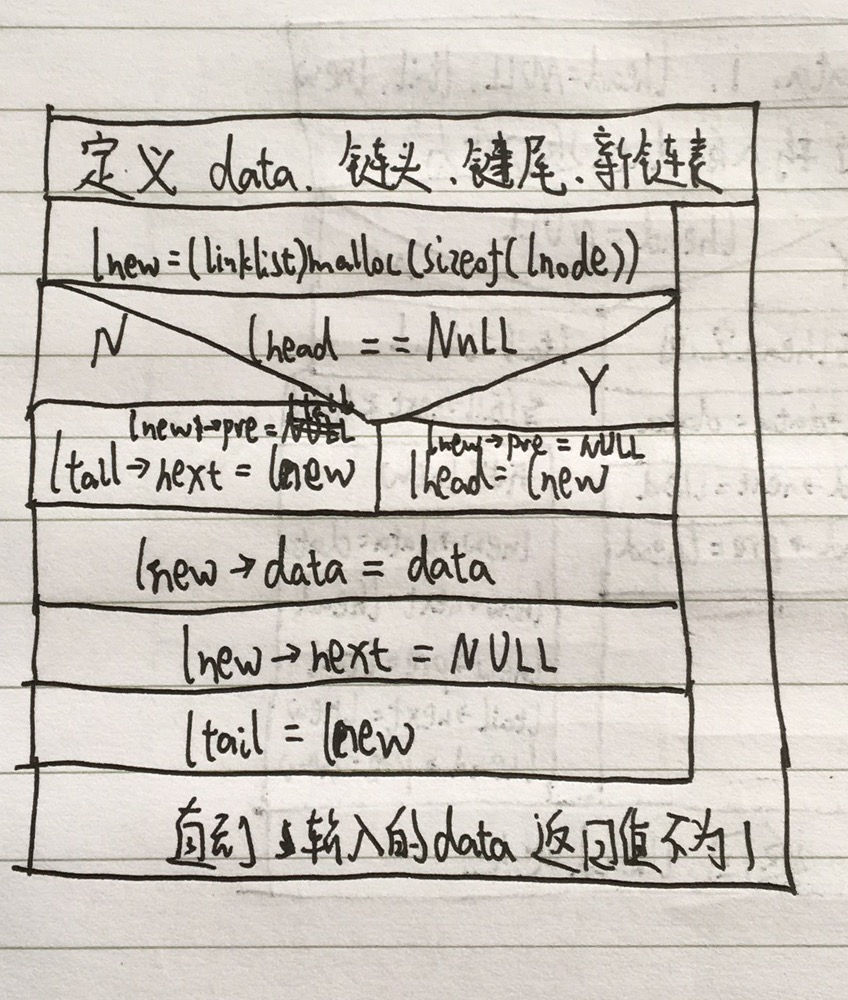 定义 data、链头、键尾、新链表
lnew=(linklist)malloc(sizeof(lnode))
N lhead == NULL Y
lnew→pre = ltail
ltail→next = lnew
lnew→pre = NULL
lhead= lnew
lnew→data = data
lnew→next = NULL
ltail = lnew
直到输入的data返回值不为1